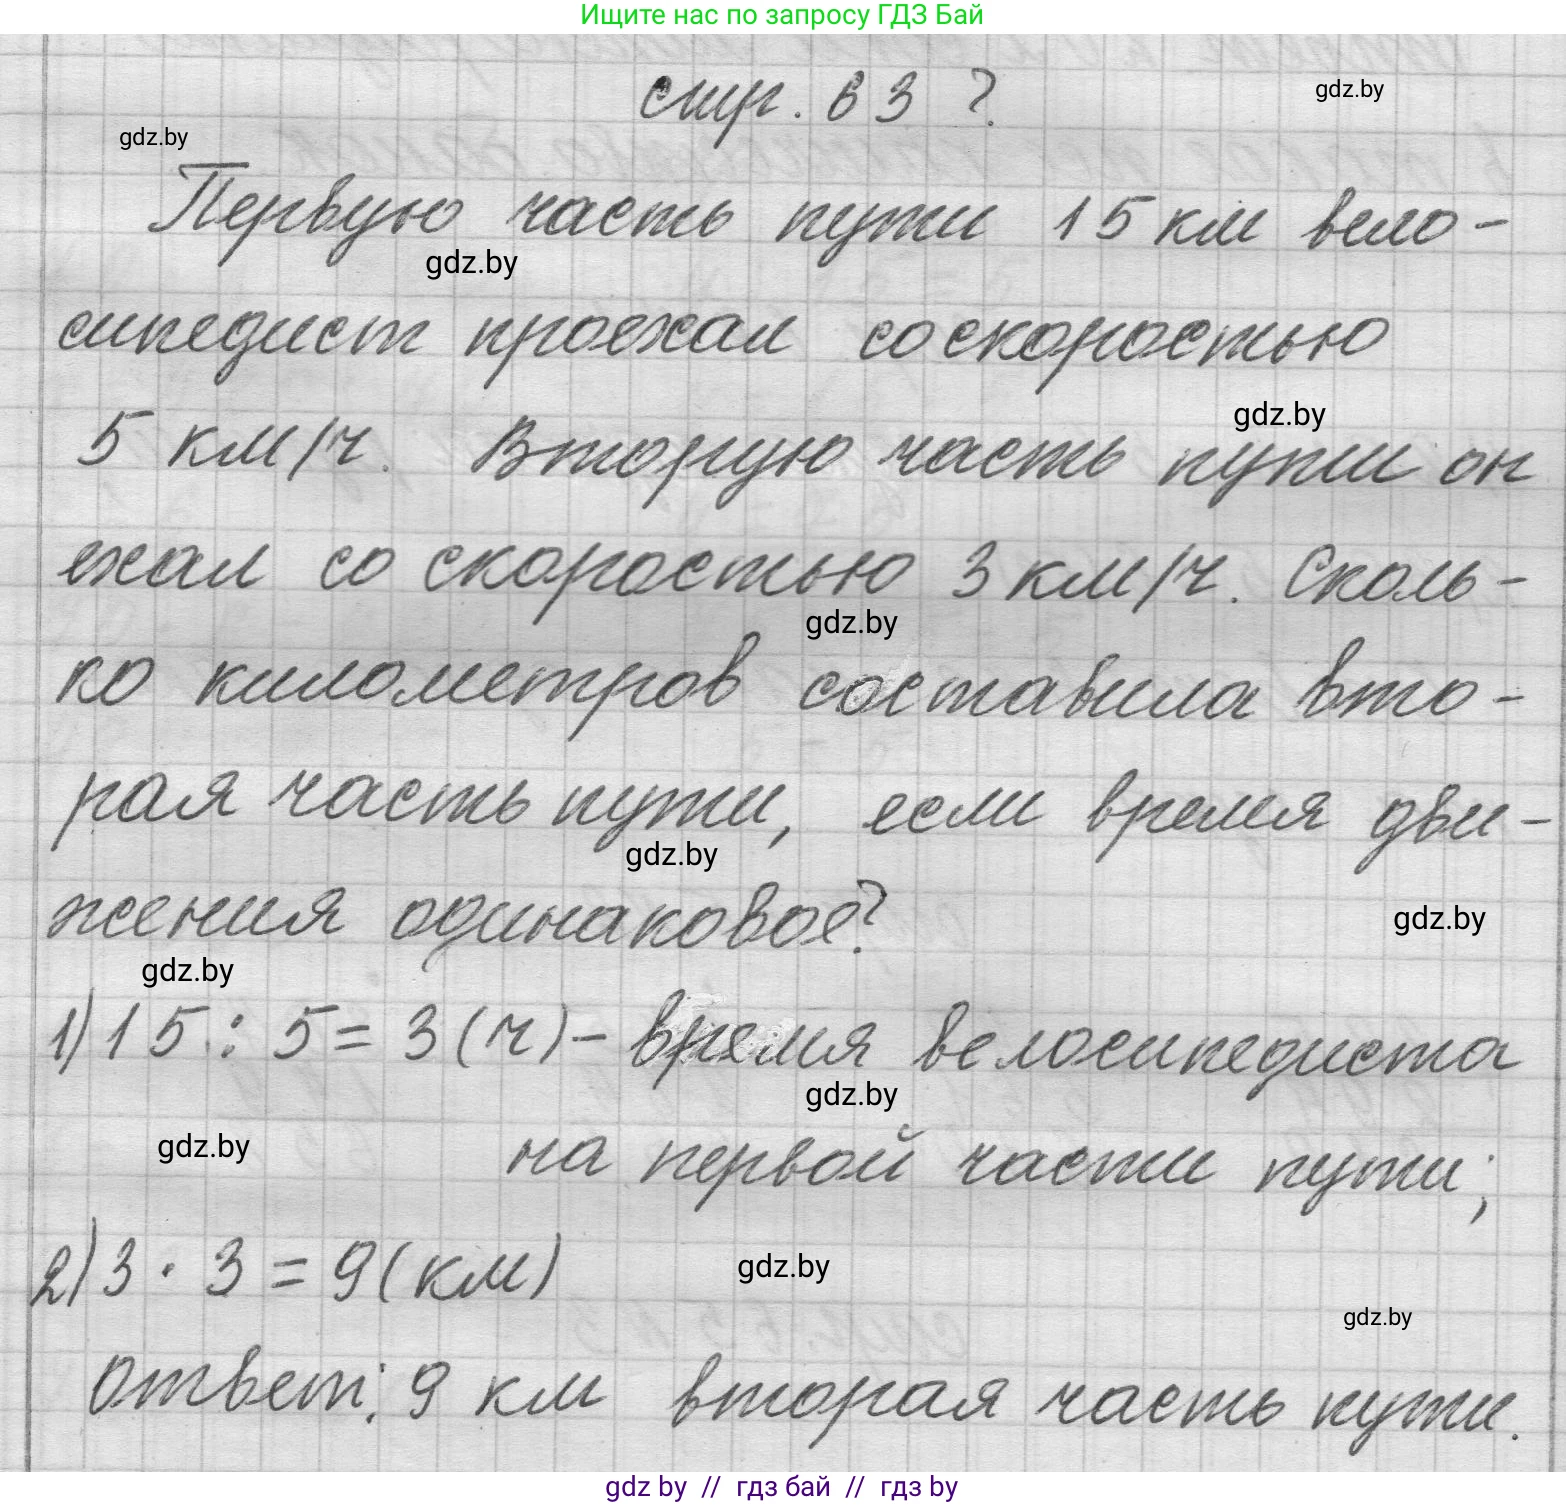 Ищите нас по запросу ГДЗ Бай
стр. 63 ?
gdz.by
gdz.by
Первую часть пути 15 км вело-
gdz.by
сипедист проехал со скоростью
gdz.by
5 км/ч. Вторую часть пути он
ехал со скоростью 3 км/ч. Сколь-
gdz.by
ко километров составила вто-
рая часть пути, если время дви-
gdz.by
жения одинаковое?
gdz.by
gdz.by
1) 15 : 5 = 3 (ч) - время велосипедиста
gdz.by
gdz.by
на первой части пути;
2) 3 · 3 = 9 (км)
gdz.by
gdz.by
Ответ: 9 км вторая часть пути.
gdz by // гдз бай // гдз by